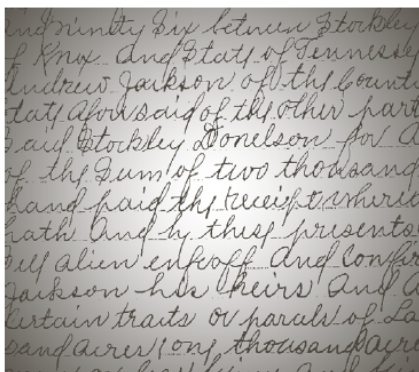 and ninety Six between Stockley
of Knox and State of Tennessy
Andrew Jackson of the County
State aforesaid of the other part
Said Stockley Donelson for a
of the Sum of two thousand
hand paid the receipt wheri
hath and by these presents
Sell alien enfeoff and Confir
Jackson his heirs and a
Certain traits or parcels of La
sand acres, one thousand acre